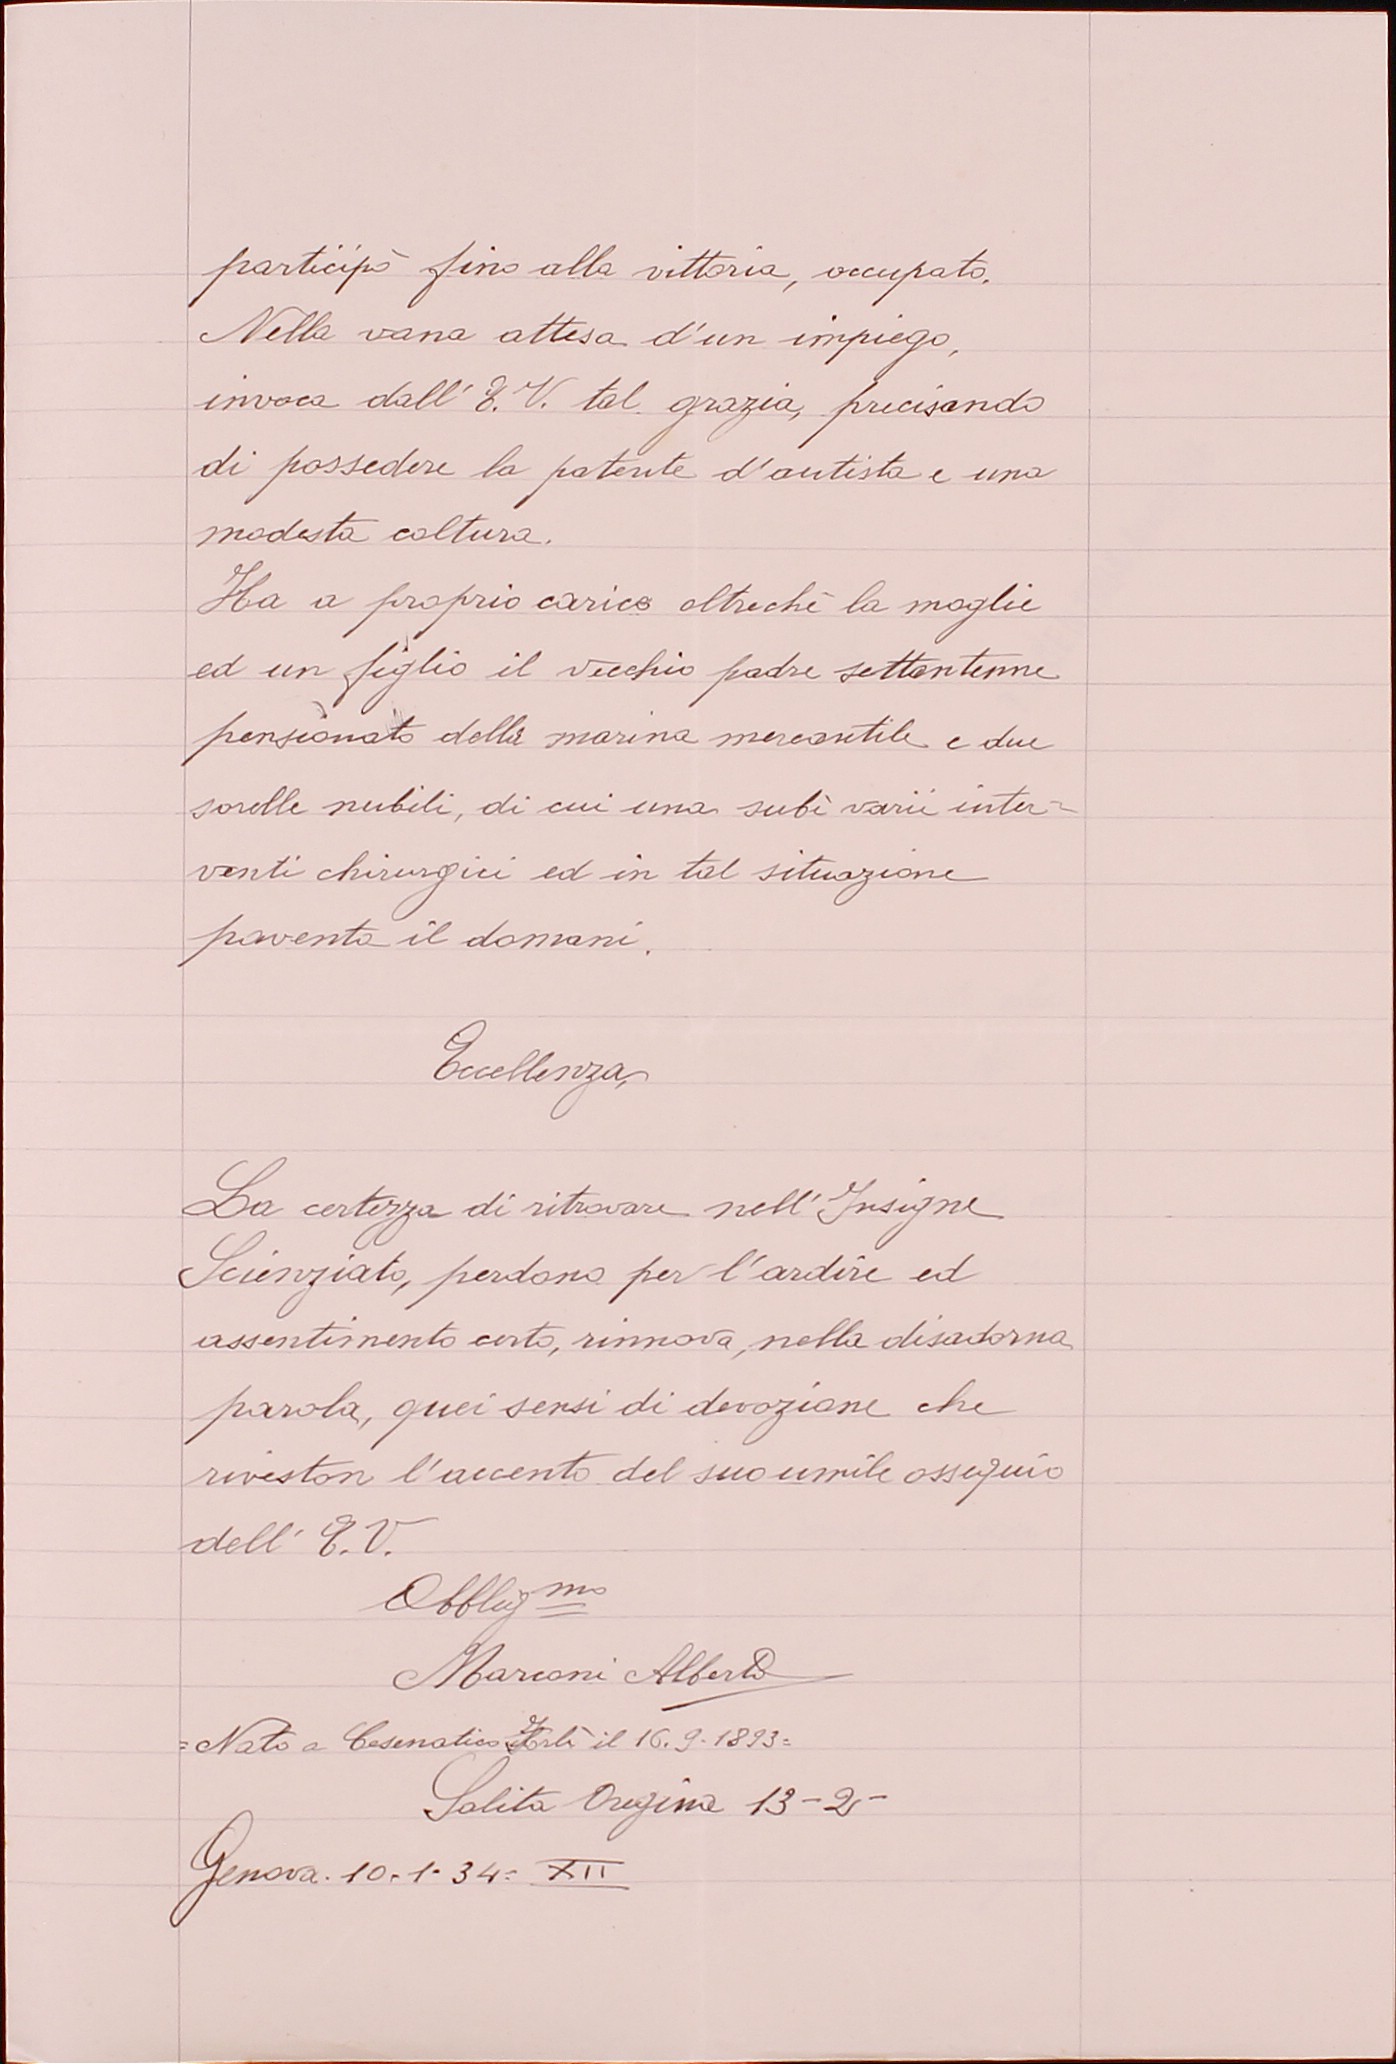 participò fino alla vittoria, occupato.
Nella vana attesa d'un impiego,
invoca dall'E.V. tal grazia, precisando
di possedere la patente d'autista e una
modesta coltura.
Ha a proprio carico oltrechè la moglie
ed un figlio il vecchio padre settantenne
pensionato della marina mercantile e due
sorelle nubili, di cui una subì varii inter-
venti chirurgici ed in tal situazione
paventa il domani.
Eccellenza,
La certezza di ritrovare nell'Insigne
Scienziato, perdono per l'ardire ed
assentimento certo, rinnova, nella disadorna
parola, quei sensi di devozione che
riveston l'accento del suo umile ossequio
dell'E.V.
Obblig mo
Marconi Alberto
= Nato a Cesenatico Forlì il 16.9.1893=
Salita Oregina 13-2-
Genova. 10.1.34= XII